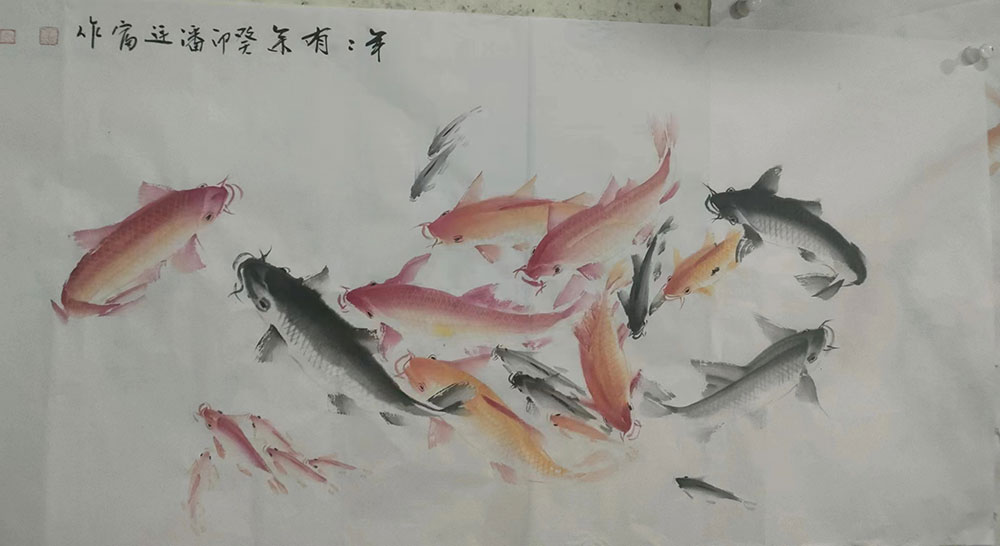 年々有余癸卯潘廷富作